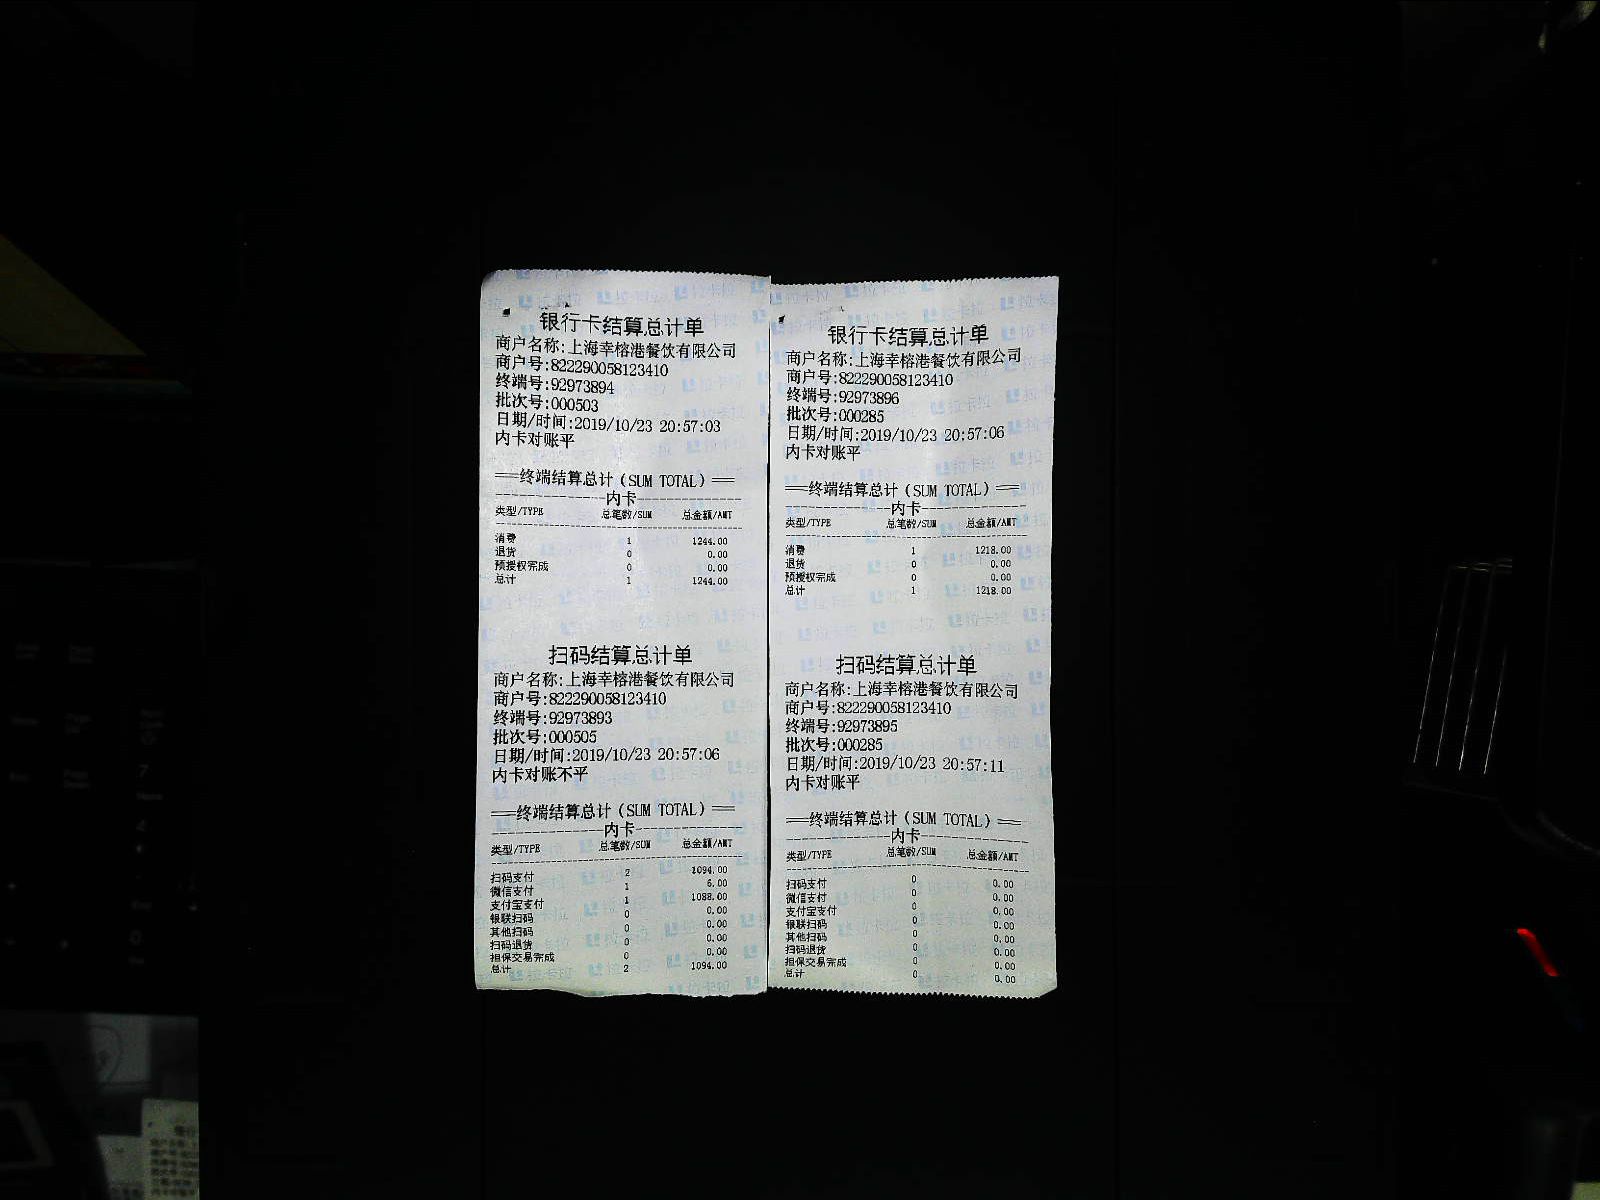 银行卡结算总计单
商户名称:上海幸榕港餐饮有限公司
商户号:822290058123410
终端号:92973894
批次号:000503
日期/时间:2019/10/23 20:57:03
内卡对账平
==终端结算总计(SUM TOTAL)==
内卡
类型/TYPE 总笔数/SUM 总金额/AMT
消费 1 1244.00
退货 0 0.00
预授权完成 0 0.00
总计 1 1244.00
扫码结算总计单
商户名称:上海幸榕港餐饮有限公司
商户号:822290058123410
终端号:92973893
批次号:000505
日期/时间:2019/10/23 20:57:06
内卡对账不平
==终端结算总计(SUM TOTAL)==
内卡
类型/TYPE 总笔数/SUM 总金额/AMT
扫码支付 2 1094.00
微信支付 1 6.00
支付宝支付 1 1088.00
银联扫码 0 0.00
其他扫码 0 0.00
扫码退货 0 0.00
担保交易完成 0 0.00
总计 2 1094.00
银行卡结算总计单
商户名称:上海幸榕港餐饮有限公司
商户号:822290058123410
终端号:92973896
批次号:000285
日期/时间:2019/10/23 20:57:06
内卡对账平
==终端结算总计(SUM TOTAL)==
内卡
类型/TYPE 总笔数/SUM 总金额/AMT
消费 1 1218.00
退货 0 0.00
预授权完成 0 0.00
总计 1 1218.00
扫码结算总计单
商户名称:上海幸榕港餐饮有限公司
商户号:822290058123410
终端号:92973895
批次号:000285
日期/时间:2019/10/23 20:57:11
内卡对账平
==终端结算总计(SUM TOTAL)==
内卡
类型/TYPE 总笔数/SUM 总金额/AMT
扫码支付 0 0.00
微信支付 0 0.00
支付宝支付 0 0.00
银联扫码 0 0.00
其他扫码 0 0.00
扫码退货 0 0.00
担保交易完成 0 0.00
总计 0 0.00